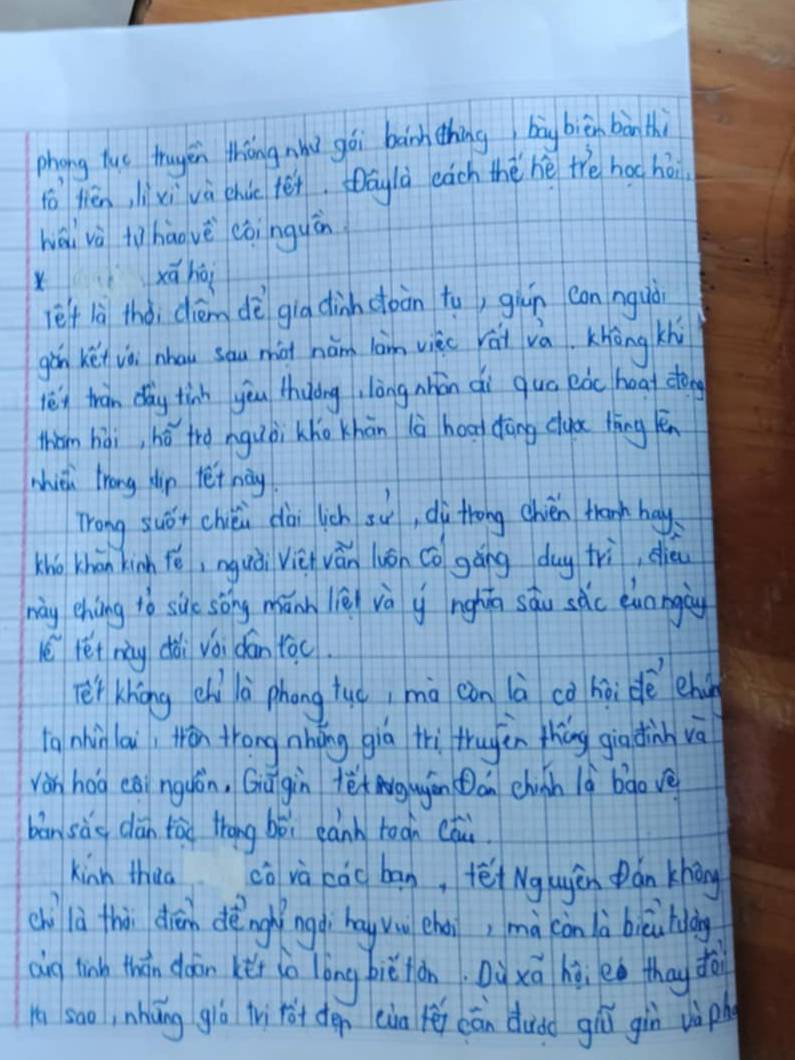 phong tục truyền thống như gói bánh chưng, bày biện bàn thờ
tổ tiên, lì xì và chúc tết. Đây là cách thế hệ trẻ học hỏi,
hiểu và tự hào về cội nguồn.
* xã hội
Tết là thời điểm để gia đình đoàn tụ, giúp con người
gắn kết với nhau sau một năm làm việc vất vả. Không khí
tết tràn đầy tình yêu thương, lòng nhân ái qua các hoạt động
thăm hỏi, hỗ trợ người khó khăn là hoạt động được tăng lên
nhiều trong dịp tết này.
Trong suốt chiều dài lịch sử, dù trong chiến tranh hay
khó khăn kinh tế, người Việt vẫn luôn cố gắng duy trì, điều
này chứng tỏ sức sống mãnh liệt và ý nghĩa sâu sắc của ngày
lễ tết này đối với dân tộc.
Tết không chỉ là phong tục, mà còn là cơ hội để chún
ta nhìn lại, trân trọng những giá trị truyền thống gia đình và
văn hoá cội nguồn. Giữ gìn tết Nguyên Đán chính là bảo vệ
bản sắc dân tộc trong bối cảnh toàn cầu.
Kính thưa cô và các bạn, tết Nguyên Đán không
chỉ là thời điểm để nghỉ ngơi hay vui chơi, mà còn là biểu tượng
của tinh thần đoàn kết và lòng biết ơn. Dù xã hội có thay đổi
ra sao, những giá trị tốt đẹp của tết cần được giữ gìn và ph